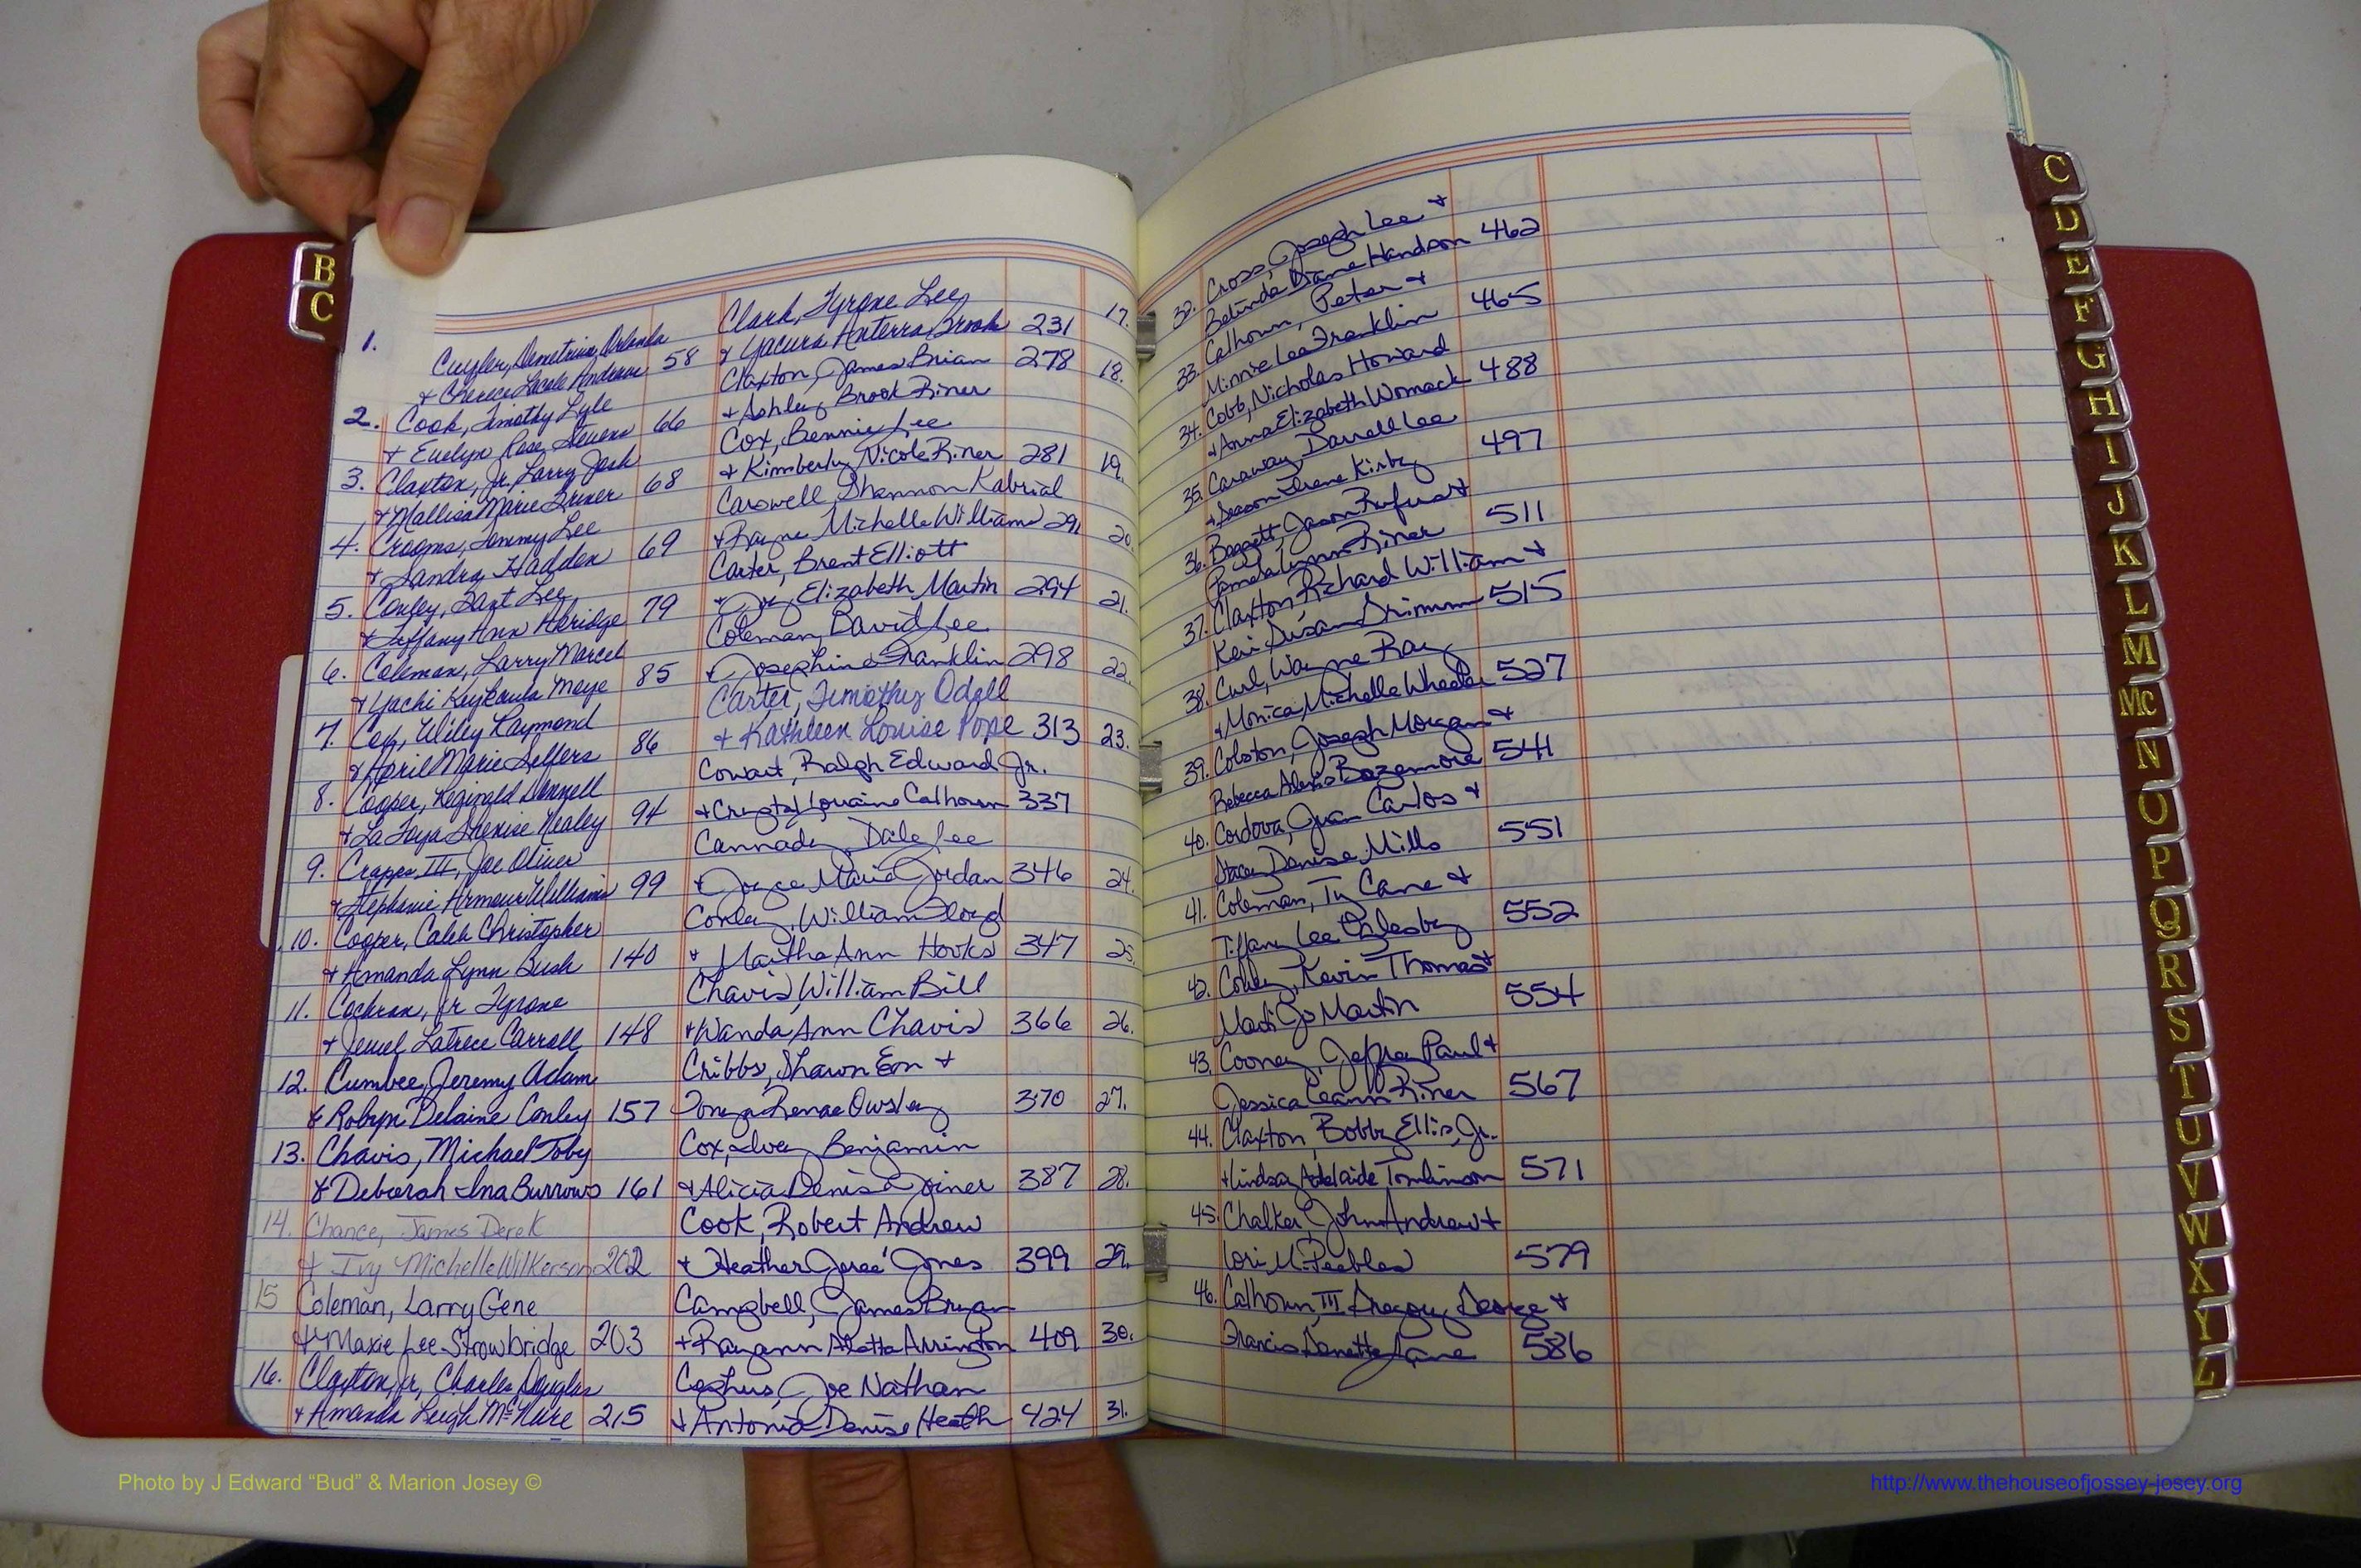 B
C
1.
Cuyler, Demetrius Orlando
+ Cherece Lacole Andrews 58
2. Cook, Timothy Lyle
+ Evelyn Rose Stevens 66
3. Claxton, Jr. Larry Josh
+ Mallisa Marie Griner 68
4. Crooms, Tommy Lee
+ Sandra Hadden 69
5. Conley, Lee
+ Tiffany Ann 79
6. Coleman, Larry Marcel
+ Yachi Maye 85
7. Cox, Wiley Raymond
+ April Marie Sellers 86
8. Cooper, Reginald Donnell
+ LaToya Shenise Nealey 94
9. Crapps III, Joe Oliver
+ Stephanie Armour Williams 99
10. Cooper, Caleb Christopher
+ Amanda Lynn Bush 140
11. Cochran, Jr Tyrone
+ Jewel Latrece Carroll 148
12. Cumbee, Jeremy Adam
+ Robyn Delaine Conley 157
13. Chavis, Michael Toby
+ Deborah Ina Burrows 161
14. Chance, James Derek
+ Ivy Michelle Wilkerson 202
15 Coleman, Larry Gene
+ Maxie Lee Strowbridge 203
16. Claxton, Jr, Charles Douglas
+ Amanda Leigh McNure 215
Clark, Tyrone Lee 17.
+ Yacura Anterra Brook 231
Claxton, James Brian 278 18.
+ Ashley Brook Riner
Cox, Bennie Lee
+ Kimberly Nicole Riner 281 19.
Carswell Shannon Kabrial
+ Rayne Michelle Williams 291 20.
Carter, Brent Elliott
+ Joy Elizabeth Martin 294 21.
Coleman, David Lee
+ Josephine Franklin 298 22.
Carter, Timothy Odell
+ Kathleen Louise Pope 313 23.
Cowart, Ralph Edward Jr.
+ Crystal Louraine Calhoun 337
Cannady, Dale Lee
+ Joyce Marie Jordan 346 24.
Conley, William Floyd
+ Martha Ann Hooks 347 25.
Chavis, William Bill
+ Wanda Ann Chavis 366 26.
Cribbs, Shawn Eon +
Tonya Renae Owsley 370 27.
Cox, Ivey Benjamin
+ Alicia Denise Joiner 387 28.
Cook, Robert Andrew
+ Heather Jereé Jones 399 29.
Campbell, James Bryan
+ Rayann Aletta Arrington 409 30.
Cephus, Joe Nathan
+ Antonia Denise Heath 424 31.
32. Cross, Joseph Lee +
Belinda Diane Handson 462
33. Calhoun, Peter +
Minnie Lee Franklin 465
34. Cobb, Nicholas Howard
+ Anna Elizabeth Womack 488
35. Caraway, Darrell Lee
+ Season Irene Kirby 497
36. Baggett, Jason Rufus +
Pamela Lynn Riner 511
37. Claxton, Richard William +
Keri Susan Drimm 515
38. Curl, Wayne Ray
+ Monica Michelle Wheeler 527
39. Colston, Joseph Morgan +
Rebecca Alexis Bazemore 541
40. Cordova, Juan Carlos +
Stacey Denise Mills 551
41. Coleman, Ty Came +
Tiffany Lee Oglesby 552
42. Conley, Kevin Thomas +
Marti Jo Martin 554
43. Cooney, Jeffrey Paul +
Jessica Leann Riner 567
44. Claxton, Bobby Ellis, Jr.
+ Lindsay Adelaide Tomlinson 571
45. Chalker, John Andrew +
Lori M. Peebles 579
46. Calhoun, III Gregory George +
Francis Danette Lane 586
C
D
E
F
G
H
I
J
K
L
M
Mc
N
O
P
Q
R
S
T
U
V
W
X
Y
Z
Photo by J Edward “Bud” & Marion Josey ©
http://www.thehouseofjossey-josey.org